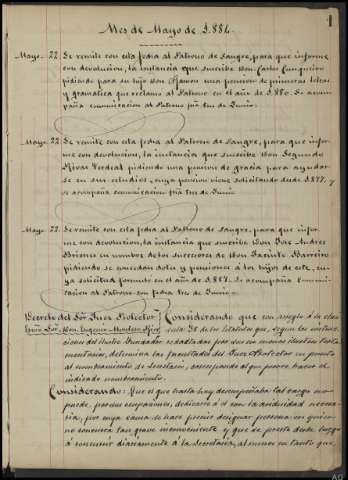 1
Mes de Mayo de 1.884.
Mayo. 22. Se remite con esta fecha al Patrono de Sangre, para que informe
con devolucion, la instancia que suscribe Don Carlos
pidiendo para su hijo Don Ramon una pension de primeras letras
y gramatica que reclamó al Patrono en el año de 1.880. Se acom-
paña comunicacion al Patrono fha tres de Junio.
Mayo. 22. Se remite con esta fecha al Patrono de Sangre, para que infor-
me con devolucion, la instancia que suscribe Don Segundo
Rivas Verdeal pidiendo una pension de gracia para ayudar-
se en sus estudios, cuya pension viene solicitando desde 1.877, y
se acompaña comunicacion fha tres de Junio.
Mayo. 22. Se remite con esta fecha al Patrono de Sangre, para que infor-
me con devolucion, la instancia que suscribe Don José Andres
en nombre de los sucesores de Don Jacinto Barreiro
pidiendo se concedan dote y pensiones á los hijos de este, cu-
ya solicitud formuló en el año de 1.881. Se acompaña comuni-
cacion al Patrono con fecha tres de Junio.
Decreto del Sor. Juez Protector Considerando que con arreglo á la clau-
Sor. Don Eugenio Montero Rios sula 38 de los Estatutos que, segun las instruc-
ciones del ilustre Fundador redactadas por sus
mentarios, determina las facultades del Juez Protector en punto
al nombramiento de Secretario, corresponde al que provee hacer el
indicado nombramiento.
Considerando: Que el que hasta hoy desempeñaba tal cargo no
puede, por sus ocupaciones, dedicarse á él con la asiduidad necesa-
ria, por cuya causa se hace preciso designar persona en quien
no concurra tan grave inconveniente y que se preste desde luego
á concurrir diariamente á la Secretaria, al menos en tanto que,